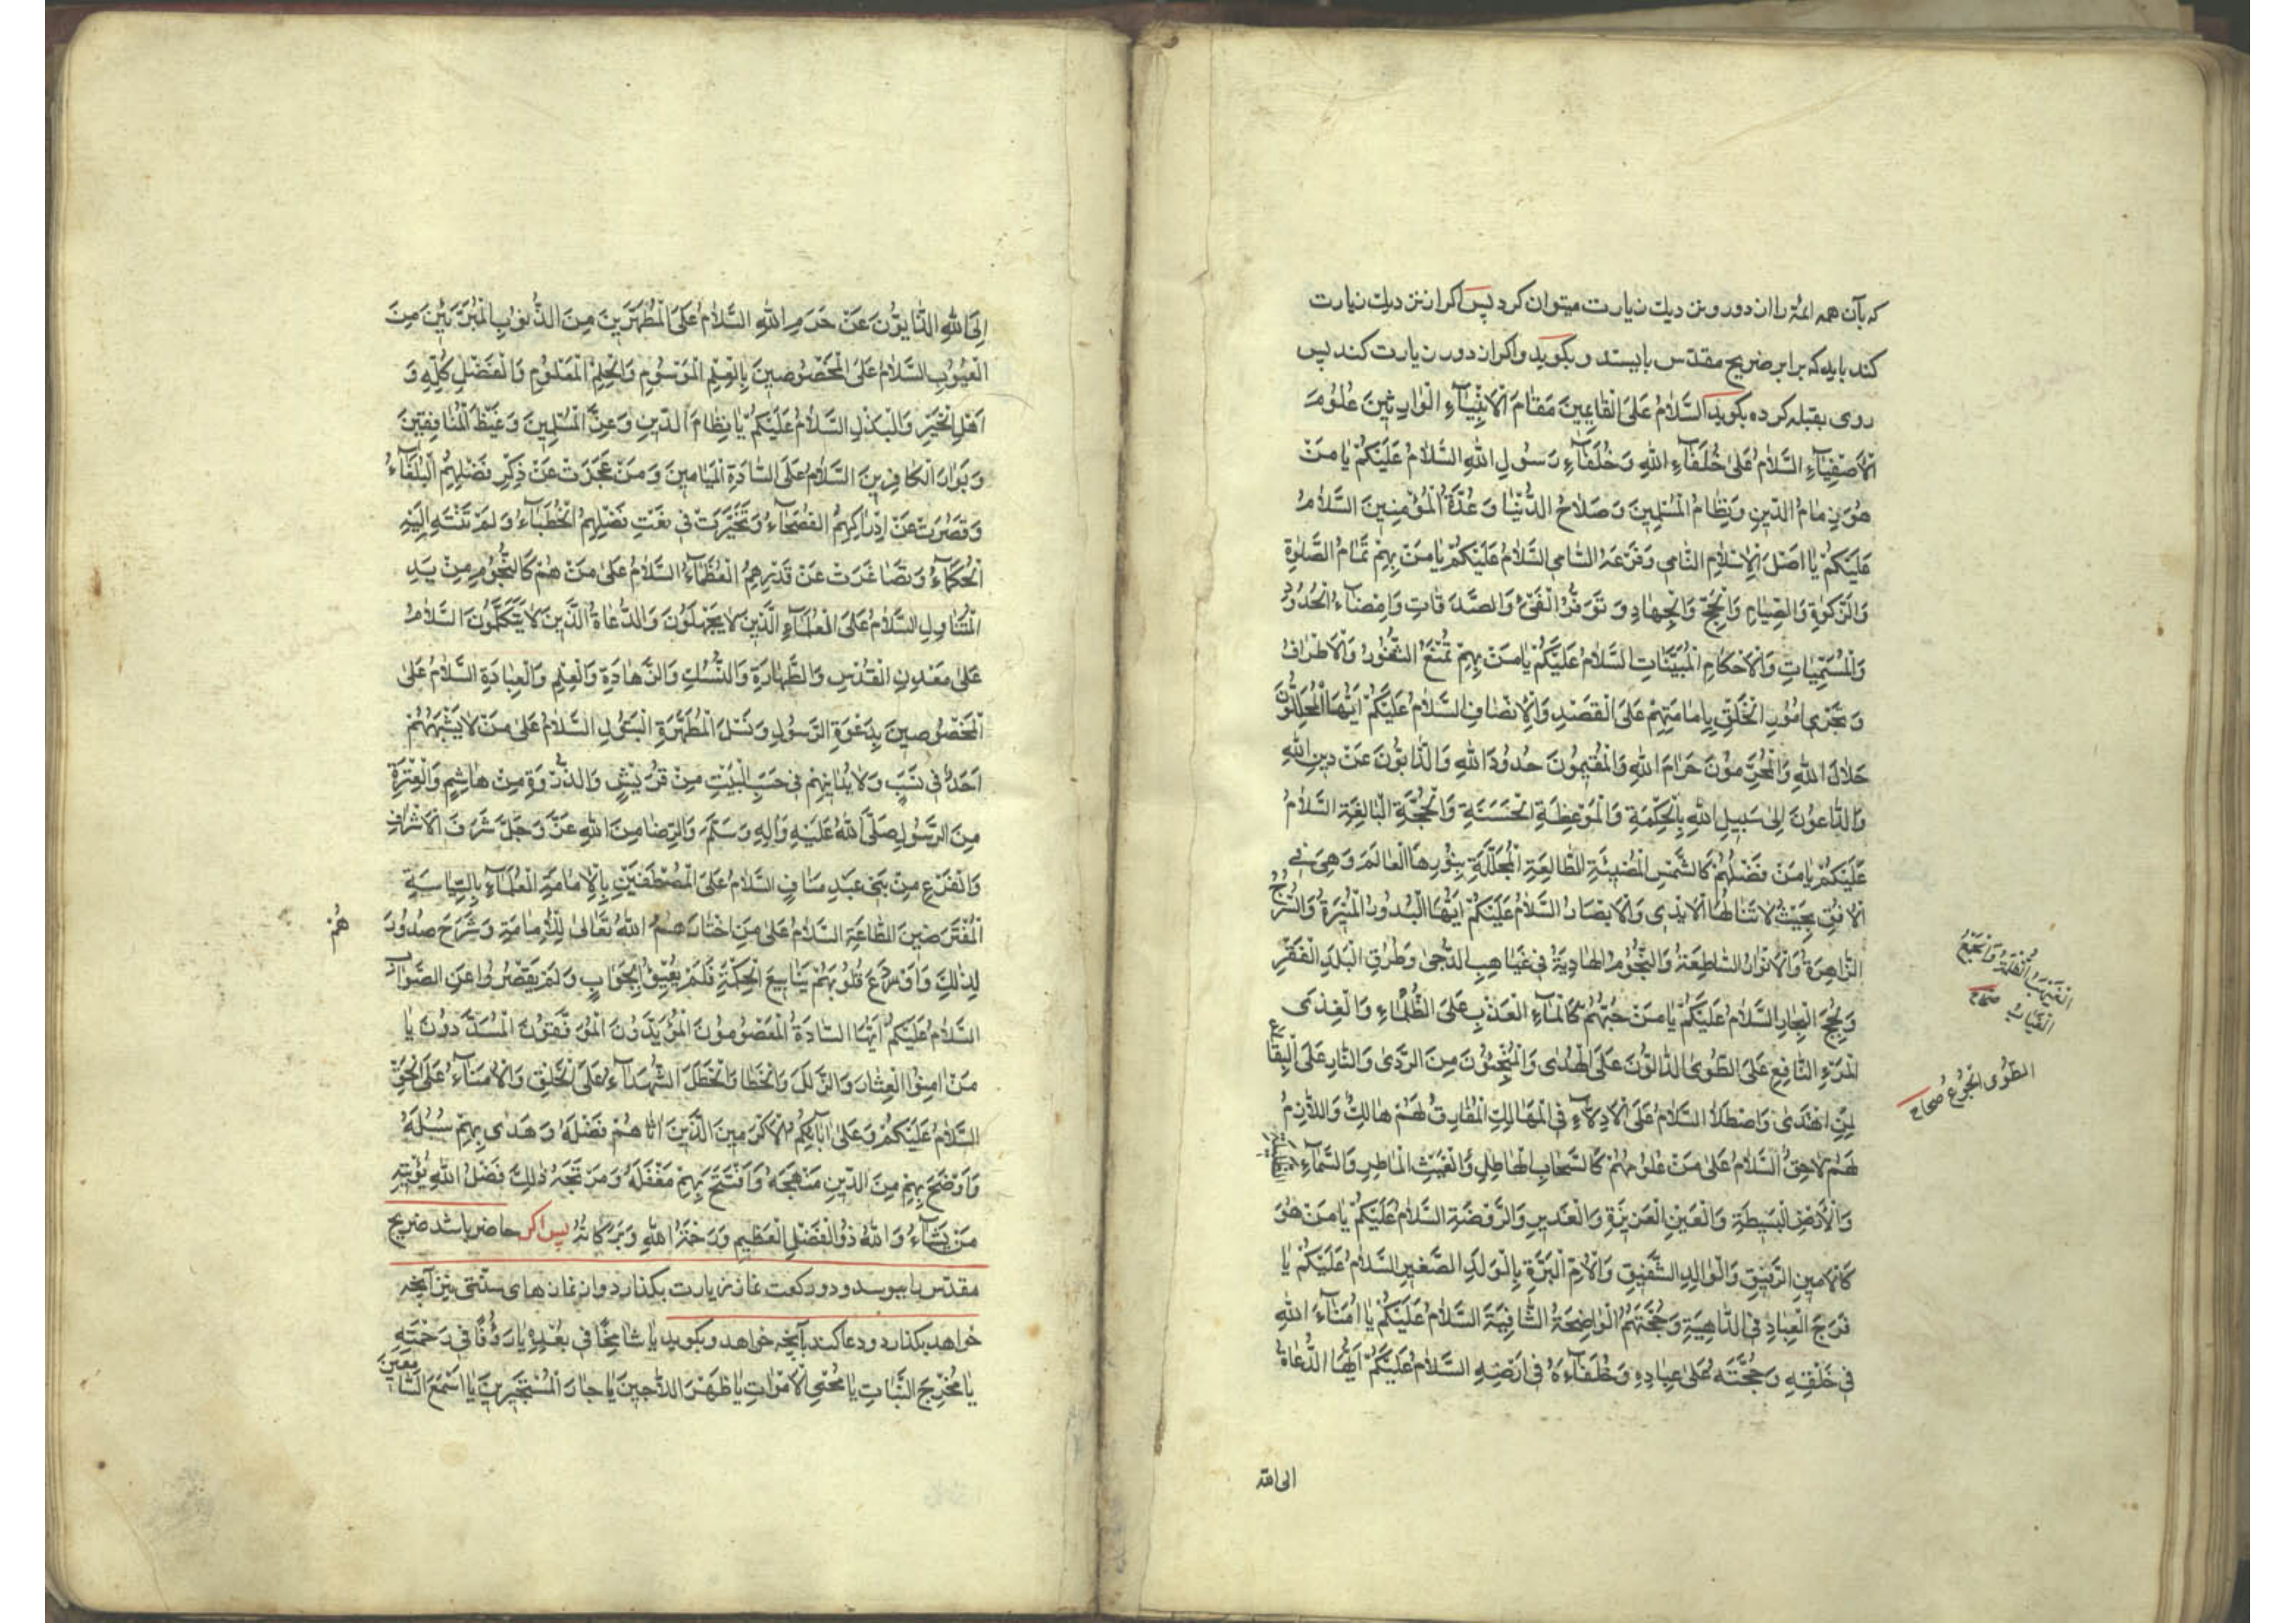 که بآن همه ائمّه را از دور و نزدیك زیارت میتوان کرد پس اگر از نزدیك زیارت
کند باید که برابر ضریح مقدّس بایستد و بگوید و اگر از دور زیارت کند پس
روی بقبله کرده بگوید اَلسَّلامُ عَلَی الْقاءِمینَ مَقامَ الْاَنْبِیآءِ الْوارِثینَ عُلُومَ
الْاَصْفِیآءِ السَّلامُ عَلی خُلَفآءِ اللهِ وَخُلَفآءِ رَسُولِ اللهِ السَّلامُ عَلَیْکُمْ یا مَنْ
هُوَ زِمامُ الدّینِ وَنِظامُ الْمُسْلِمینَ وَصَلاحُ الدُّنْیا وَعُدَّةُ الْمُؤْمِنینَ السَّلامُ
عَلَیْکُمْ یا اَصْلَ الْاِسْلامِ النّامی وَفَرْعَهُ السّامی السَّلامُ عَلَیْکُمْ یا مَنْ بِهِمْ تَمامُ الصَّلوةِ
وَالزَّکوةِ وَالصِّیامِ وَالْحَجِّ وَالْجِهادِ وَ تَوَفُّرُ الْفَیْءِ وَالصَّدَقاتِ وَاِمْضآءُ الْحُدُودِ
وَالْمُسَمَّیاتِ وَالْاَحْکامِ الْمُبَیَّناتِ السَّلامُ عَلَیْکُمْ یا مَنْ بِهِمْ تُمْنَعُ الثُّغُورُ وَالْاَطْرافُ
وَ تَجْری اُمُورُ الْخَلْقِ بِاِمامَتِهِمْ عَلَی الْقَصْدِ وَالْاِنْصافِ السَّلامُ عَلَیْکُمْ اَیُّهَا الْمُحَلِّلُونَ
حَلالَ اللهِ وَالْمُحَرِّمُونَ حَرامَ اللهِ وَالْمُقیمُونَ حُدُودَ اللهِ وَالذّابُّونَ عَنْ دینِ اللهِ
وَالدّاعُونَ اِلی سَبیلِ اللهِ بِالْحِکْمَةِ وَالْمَوْعِظَةِ الْحَسَنَةِ وَالْحُجَّةِ الْبالِغَةِ السَّلامُ
عَلَیْکُمْ یا مَنْ فَضْلُهُمْ کَالشَّمْسِ الْمُضیئَةِ الطّالِعَةِ الْمُجَلِّلَةِ بِنُورِهَا الْعالَمَ وَهِیَ فِی
الْاُفُقِ بِحَیْثُ لا تَنالُهَا الْاَیْدی وَالْاَبْصارُ السَّلامُ عَلَیْکُمْ اَیُّهَا الْبُدُورُ الْمُنیرَةُ وَالسُّرُجُ
الزّاهِرَةُ وَالْاَنْوارُ السّاطِعَةُ وَالنُّجُومُ الْهادِیَةُ فی غَیاهِبِ الدُّجی وَطُرُقِ الْبَلَدِ الْقَفْرِ
وَلُجَجِ الْبِحارِ السَّلامُ عَلَیْکُمْ یا مَنْ حُبُّهُمْ کَالْمآءِ الْعَذْبِ عَلَی الظَّمآءِ وَالْغِذی
الْمَرْءِ النّافِعِ عَلَی الطَّوَی الدّالُّونَ عَلَی الْهُدی وَالْمُنْجُونَ مِنَ الرَّدی وَالنّارِ عَلَی الْیِفاعِ
لِمَنِ اهْتَدی وَاصْطَلا السَّلامُ عَلَی الْاَدِلّآءِ فِی الْمَهالِكِ الْمُفارِقُ لَهُمْ هالِكٌ وَاللّازِمُ
لَهُمْ لاحِقٌ السَّلامُ عَلی مَنْ عُلُومُهُمْ کَالسَّحابِ الْهاطِلِ وَالْغَیْثِ الْماطِرِ وَالسَّمآءِ الظَّلیلَةِ
وَالْاَرْضِ الْبَسیطَةِ وَالْعَیْنِ الْغَزیرَةِ وَالْغَدیرِ وَالرَّوْضَةِ السَّلامُ عَلَیْکُمْ یا مَنْ هُوَ
کَالْاَمینِ الرَّفیقِ وَالْوالِدِ الشَّفیقِ وَالْاُمِّ الْبَرَّةِ بِالْوَلَدِ الصَّغیرِ السَّلامُ عَلَیْکُمْ یا
فَرَجَ الْعِبادِ فِی الدّاهِیَةِ وَحُجَّتَهُمُ الْواضِحَةَ الشّافِیَةَ السَّلامُ عَلَیْکُمْ یا اُمَنآءَ اللهِ
فی خَلْقِهِ وَحُجَّتَهُ عَلی عِبادِهِ وَخُلَفآءَهُ فی اَرْضِهِ السَّلامُ عَلَیْکُمْ اَیُّهَا الدُّعاةُ
الطّوی الجوع صحاح
الی الله
اِلَی اللهِ الذّابُّونَ عَنْ حَرَمِ اللهِ السَّلامُ عَلَی الْمُطَهَّرینَ مِنَ الذُّنُوبِ الْمُبَرَّئینَ مِنَ
الْعُیُوبِ السَّلامُ عَلَی الْمَخْصُوصینَ بِالْعِلْمِ الْمَوْسُومِ وَالْحِلْمِ الْمَعْلُومِ وَالْفَضْلِ کُلِّهِ وَ
اَهْلِ الْخَیْرِ وَالْبَذْلِ السَّلامُ عَلَیْکُمْ یا نِظامَ الدّینِ وَعِزَّ الْمُسْلِمینَ وَغَیْظَ الْمُنافِقینَ
وَ بَوارَ الْکافِرینَ السَّلامُ عَلَی السّادَةِ الْمَیامینَ وَمَنْ عَجَزَتْ عَنْ ذِکْرِ فَضْلِهِمُ الْبُلَغآءُ
وَقَصُرَتْ عَنْ اِدْراکِهِمُ الْفُصَحآءُ وَتَحَیَّرَتْ فی نَعْتِ فَضْلِهِمُ الْخُطَبآءُ وَلَمْ تَنْتَهِ اِلَیْهِ
الْحُکَمآءُ وَتَصاغَرَتْ عَنْ قَدْرِهِمُ الْعُظَمآءُ السَّلامُ عَلی مَنْ هُمْ کَالنُّجُومِ مِنْ یَدِ
الْمُتَناوِلِ السَّلامُ عَلَی الْعُلَمآءِ الَّذینَ لا یَجْهَلُونَ وَالدُّعاةُ الَّذینَ لا یَتَکَلَّمُونَ السَّلامُ
عَلی مَعْدِنِ الْقُدْسِ وَالطَّهارَةِ وَالنُّسُكِ وَالزَّهادَةِ وَالْعِلْمِ وَالْعِبادَةِ السَّلامُ عَلَی
الْمَخْصُوصینَ بِدَعْوَةِ الرَّسُولِ وَنَسْلِ الْمُطَهَّرَةِ الْبَتُولِ السَّلامُ عَلی مَنْ لا یَشْبَهُهُمْ
اَحَدٌ فی نَسَبٍ وَلا یُدانیهِمْ فی حَسَبٍ الْبَیْتِ مِنْ قُرَیْشٍ وَالذُّرْوَةِ مِنْ هاشِمٍ وَالْعِتْرَةِ
مِنَ الرَّسُولِ صَلَّی اللهُ عَلَیْهِ وَآلِهِ وَسَلَّمَ وَالرِّضا مِنَ اللهِ عَزَّ وَجَلَّ شَرَفَ الْاَشْرافِ
وَالْفَرْعِ مِنْ بَنی عَبْدِ مَنافٍ السَّلامُ عَلَی الْمُصْطَفَیْنَ بِالْاِمامَةِ الْعُلَمآءِ بِالسِّیاسَةِ
الْمُفْتَرَضینَ الطّاعَةِ السَّلامُ عَلی مَنِ اخْتارَهُمُ اللهُ تَعالی لِلْاِمامَةِ وَشَرَحَ صُدُورَ
هُمْ
لِذلِكَ وَاَوْدَعَ قُلُوبَهُمْ یَنابیعَ الْحِکْمَةِ فَلَمْ یَعْیَوْا بِجَوابٍ وَلَمْ یَقْصُرُوا عَنِ الصَّوابِ
السَّلامُ عَلَیْکُمْ اَیُّهَا السّادَةُ الْمَعْصُومُونَ الْمُؤَیَّدُونَ الْمُوَفَّقُونَ الْمُسَدَّدُونَ یا
مَنْ اَمِنُوا الْعِثارَ وَالزَّلَلَ وَالْخَطا وَالْخَطَلَ الشُّهَدآءُ عَلَی الْخَلْقِ وَالْاُمَنآءُ عَلَی الْحَقِّ
السَّلامُ عَلَیْکُمْ وَعَلی آبآئِکُمُ الْاَکْرَمینَ الَّذینَ آتاهُمْ فَضْلَهُ وَهَدی بِهِمْ سُبُلَهُ
وَاَوْضَحَ بِهِمْ مِنَ الدّینِ مَنْهَجَهُ وَافْتَتَحَ بِهِمْ مُقْفَلَهُ وَمُرْتَجَهُ ذلِكَ فَضْلُ اللهِ یُؤْتیهِ
مَنْ یَشآءُ وَاللهُ ذُو الْفَضْلِ الْعَظیمِ وَرَحْمَةُ اللهِ وَبَرَکاتُهُ پس اگر حاضر باشد ضریح
مقدّس را ببوسد و دو رکعت نماز زیارت بگذارد و از نمازهای سنّتی نیز آنچه
خواهد بگذارد و دعا کند بآنچه خواهد و بگوید یا شامِخًا فی بُعْدِهِ یا رَؤُفًا فی رَحْمَتِهِ
یا مُخْرِجَ النَّباتِ یا مُحْیِیَ الْاَمْواتِ یا ظَهْرَ اللّاجینَ یا جارَ الْمُسْتَجیرینَ یا اَسْمَعَ السّامِعینَ